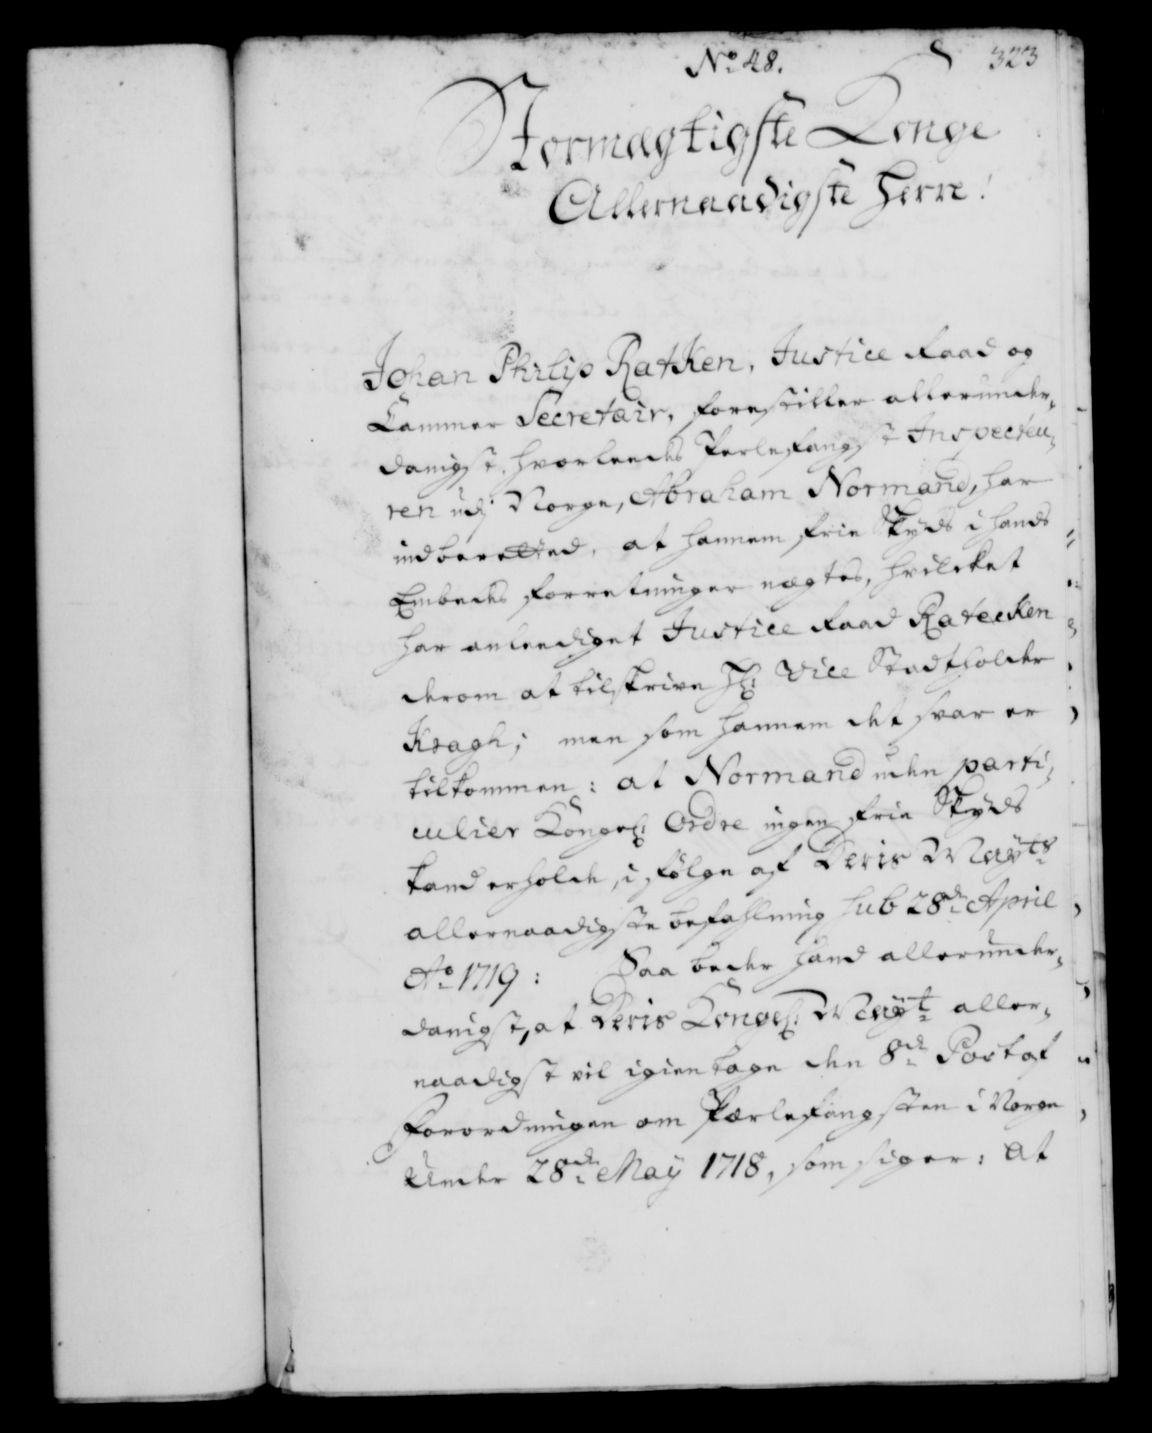 No 48.
323
Stormægtigste Konge
Allernaadigste Herre!
Johan Philip Ratken, Justice Raad og
Cammer Secretair, forestiller allerunder-
danigst, hvorleedes Perlefangst Inspecteu-
ren udj Norge, Abraham Normand, har
indberetted, at hannem frie Skyds i hands
Embeds forretninger nægtes, hvilcket
har anleediget Justice Raad Rateeken
derom at tilskrive Hr: Vice Stadtholder
Kragh; men som hannem det svar er
tilkommen: at Normand uden parti-
culier Kongel: Ordre ingen frie Skyds
kand erholde, i følge af Deris Mayts
allernaadigste befahlning sub 28de April
Ao 1719: Saa beder hand allerunder-
danigst, at Deris Kongel: Mayt aller-
naadigst vil igientage den 8de Post af
Forordningen om Pærlefangsten i Norge
Under 28de May 1718, som siger: At